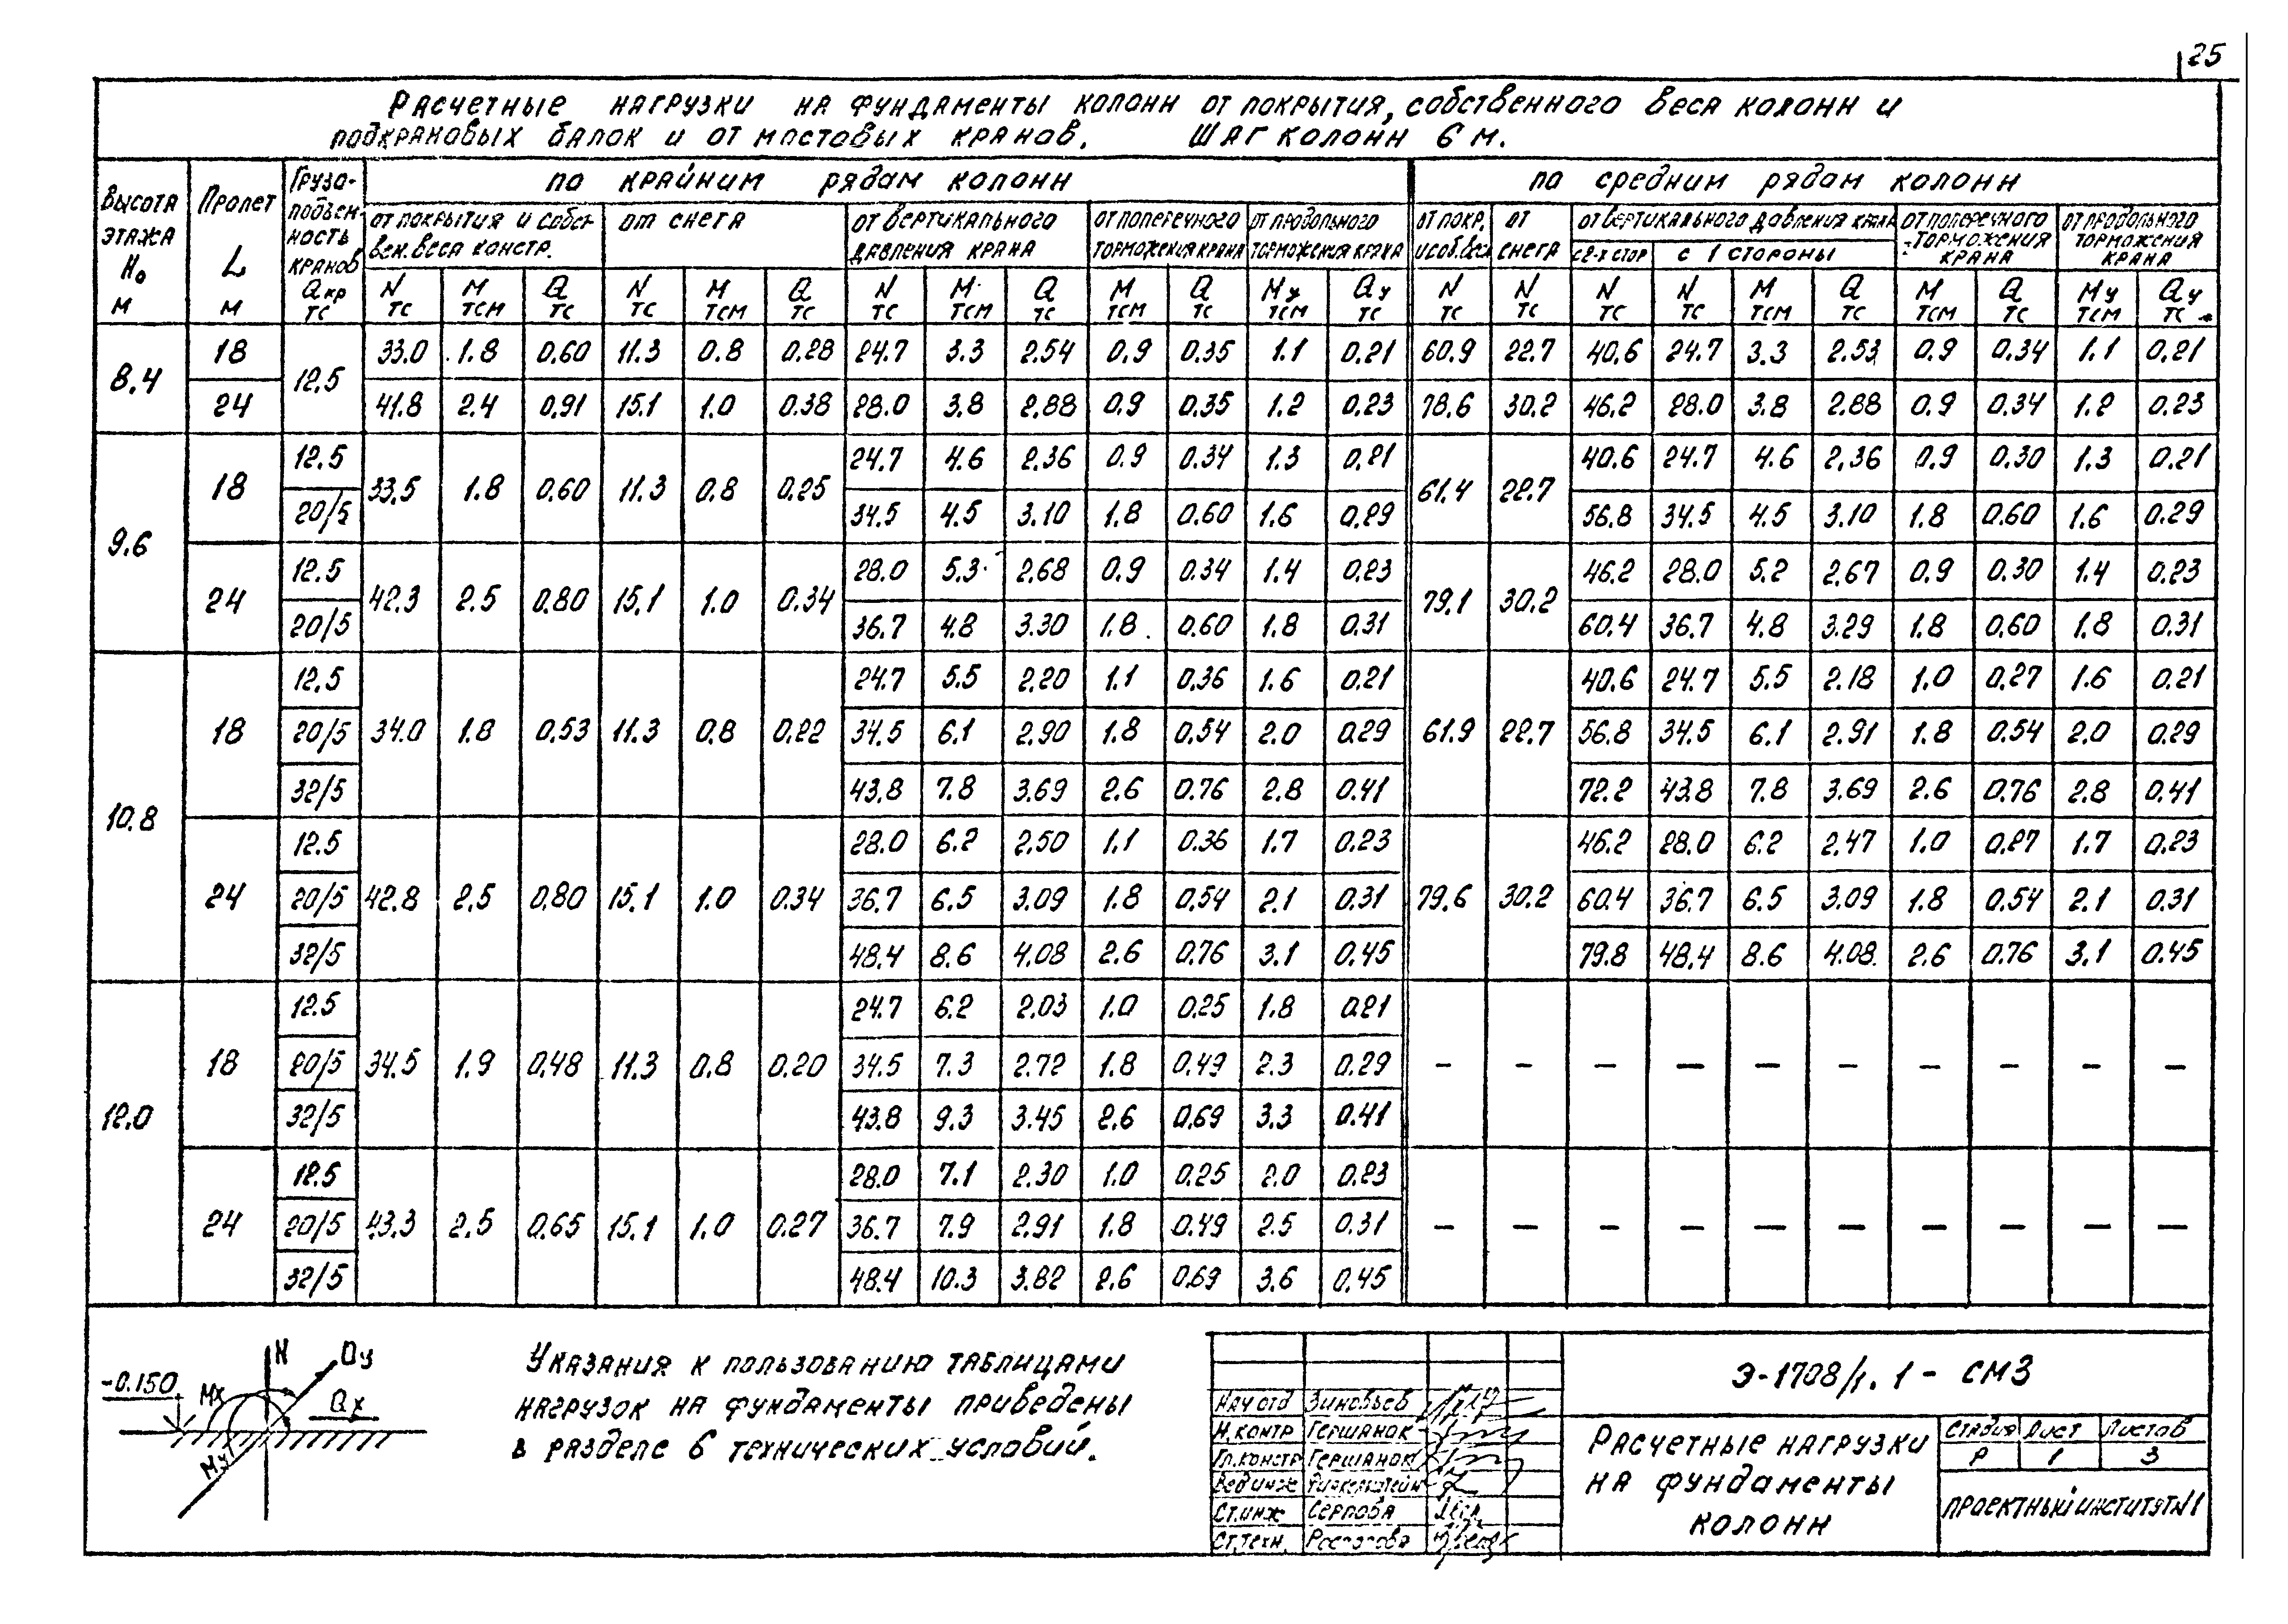 25
Расчетные нагрузки на фундаменты колонн от покрытия, собственного веса колонн и
подкрановых балок и от мостовых кранов. Шаг колонн 6 м.
Высота этажа Н₀ м
Пролет L м
Грузо-подъем-ность кранов Qкр тс
по крайним рядам колонн
по средним рядам колонн
от покрытия и собст-вен. веса констр.
от снега
от вертикального давления крана
от поперечного торможения крана
от продольного торможения крана
от покр. и соб. веса
от снега
от вертикального давления крана
с 2-х стор
с 1 стороны
от поперечного торможения крана
от продольного торможения крана
N тс М тсм Q тс N тс М тсм Q тс N тс М тсм Q тс М тсм Q тс Му тсм Qу тс N тс N тс N тс N тс М тсм Q тс М тсм Q тс Му тсм Qу тс
8.4 18 12.5 33.0 1.8 0.60 11.3 0.8 0.28 24.7 3.3 2.54 0.9 0.35 1.1 0.21 60.9 22.7 40.6 24.7 3.3 2.53 0.9 0.34 1.1 0.21
24 41.8 2.4 0.91 15.1 1.0 0.38 28.0 3.8 2.88 0.9 0.35 1.2 0.23 78.6 30.2 46.2 28.0 3.8 2.88 0.9 0.34 1.2 0.23
9.6 18 33.5 1.8 0.60 11.3 0.8 0.25 61.4 22.7
12.5 24.7 4.6 2.36 0.9 0.34 1.3 0.21 40.6 24.7 4.6 2.36 0.9 0.30 1.3 0.21
20/5 34.5 4.5 3.10 1.8 0.60 1.6 0.29 56.8 34.5 4.5 3.10 1.8 0.60 1.6 0.29
24 42.3 2.5 0.80 15.1 1.0 0.34 79.1 30.2
12.5 28.0 5.3 2.68 0.9 0.34 1.4 0.23 46.2 28.0 5.2 2.67 0.9 0.30 1.4 0.23
20/5 36.7 4.8 3.30 1.8 0.60 1.8 0.31 60.4 36.7 4.8 3.29 1.8 0.60 1.8 0.31
10.8
12.5 24.7 5.5 2.20 1.1 0.36 1.6 0.21 40.6 24.7 5.5 2.18 1.0 0.27 1.6 0.21
18 20/5 34.0 1.8 0.53 11.3 0.8 0.22 34.5 6.1 2.90 1.8 0.54 2.0 0.29 61.9 22.7 56.8 34.5 6.1 2.91 1.8 0.54 2.0 0.29
32/5 43.8 7.8 3.69 2.6 0.76 2.8 0.41 72.2 43.8 7.8 3.69 2.6 0.76 2.8 0.41
12.5 28.0 6.2 2.50 1.1 0.36 1.7 0.23 46.2 28.0 6.2 2.47 1.0 0.27 1.7 0.23
24 20/5 42.8 2.5 0.80 15.1 1.0 0.34 36.7 6.5 3.09 1.8 0.54 2.1 0.31 79.6 30.2 60.4 36.7 6.5 3.09 1.8 0.54 2.1 0.31
32/5 48.4 8.6 4.08 2.6 0.76 3.1 0.45 79.8 48.4 8.6 4.08 2.6 0.76 3.1 0.45
12.0
12.5 24.7 6.2 2.03 1.0 0.25 1.8 0.21
18 20/5 34.5 1.9 0.48 11.3 0.8 0.20 34.5 7.3 2.72 1.8 0.49 2.3 0.29 – – – – – – – – – –
32/5 43.8 9.3 3.45 2.6 0.69 3.3 0.41
12.5 28.0 7.1 2.30 1.0 0.25 2.0 0.23
24 20/5 43.3 2.5 0.65 15.1 1.0 0.27 36.7 7.9 2.91 1.8 0.49 2.5 0.31 – – – – – – – – – –
32/5 48.4 10.3 3.82 2.6 0.69 3.6 0.45
N Qу
-0.150 Мх Qх
Му
Указания к пользованию таблицами
нагрузок на фундаменты приведены
в разделе 6 технических условий.
Нач отд Зиновьев
Н.контр Гершанок
Гл.констр Гершанок
Вед инж
Ст.инж Серпова
Ст.техн.
Э-1708/1.1 - СМ3
Расчетные нагрузки
на фундаменты
колонн
Стадия Лист Листов
Р 1 3
Проектный институт №1